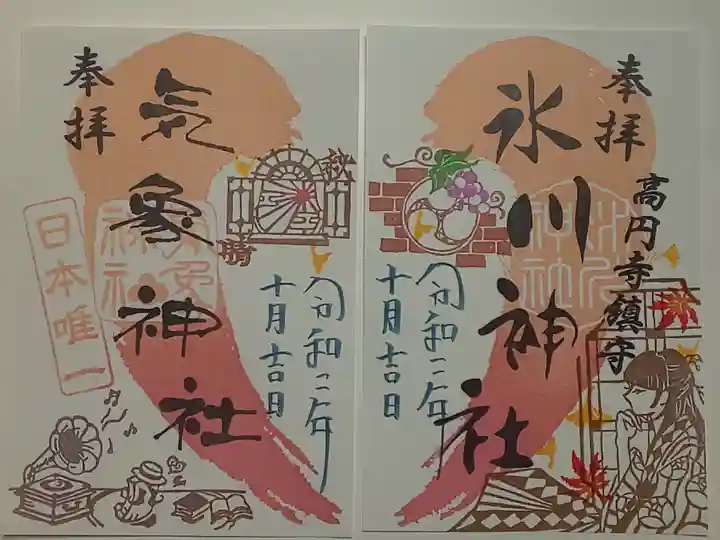 奉拝
高円寺鎮守
氷川神社
氷川神社
令和二年
十月吉日
奉拝
気象神社
気象神社
日本唯一
秋
晴
令和二年
十月吉日